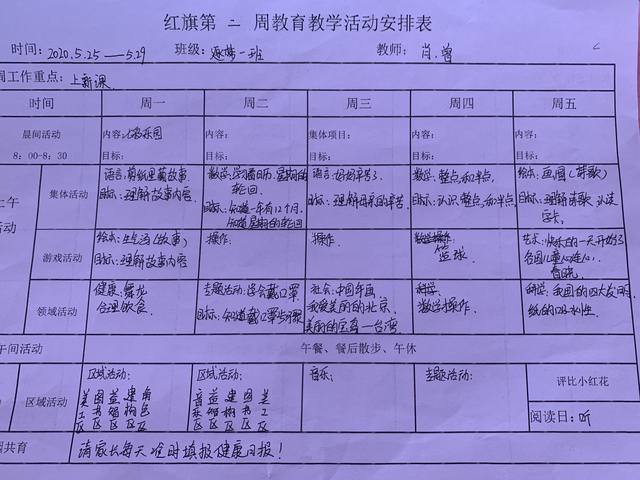 红旗第 二 周教育教学活动安排表
时间: 2020.5.25——5.29 班级: 逐梦一班 教师: 肖.曾
周工作重点: 上新课.
时间 周一 周二 周三 周四 周五
晨间活动 内容: 乐园 内容: 集体项目: 内容: 内容:
8:00-8:30 目标: 目标: 目标: 目标: 目标:
上午
活动
集体活动
语言: 剪纸里藏故事.
目标: 理解故事内容
数学: 学习看日历, 星期的
轮回.
目标: 知道一年有12个月.
知道星期的轮回
语言: 妈妈辛苦了.
目标: 理解母亲的辛苦.
数学: 整点和半点
目标: 认识整点和半点.
绘本: 画(诗歌)
目标: 理解诗歌. 认读
字卡.
游戏活动
绘本: (故事)
目标: 理解故事内容
操作:
操作.
篮球.
艺术: 快乐的一天开始了
春晓.
领域活动
健康: 舞龙
合理饮食.
主题活动: 学会戴口罩.
目标: 知道戴口罩步骤
社会: 中国年画
我爱美丽的北京.
美丽的宝岛一台湾
科学:
数学操作.
科学: 我国的四大发明.
纸的吸水性.
午间活动 午餐、餐后散步、午休
区域活动
区域活动:
美工区 图书区 益智区 建构区 角色区
区域活动:
音乐区 益智区 建构区 图书区 美工区
音乐:
主题活动:
评比小红花
阅读日: 听
园共育 请家长每天准时填报健康日报!